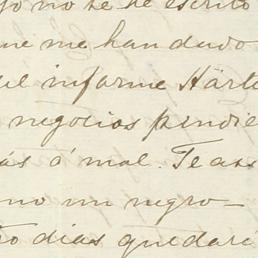 yo no te he escrito
ue me han dado
el informe Harte
negocios pendie
ás ó mal. Te as
no un negro_
o dias quedaré